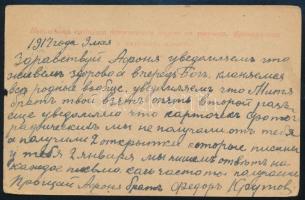 1917 года 9 мая
Здравствуй Афоня уведомляем что
живем здорово а впередь Бог. кланяемся
все родные вообще, уведомляем что Митя
брат твой взят опять второй раз,
еще уведомляем что карточек фотог
рафических мы не получали от тебя
а получили 2 открытки которые писаны
у тебя 2 января мы пишем ответ на
каждое письмо
Прощай Афоня брат Федор Крутов